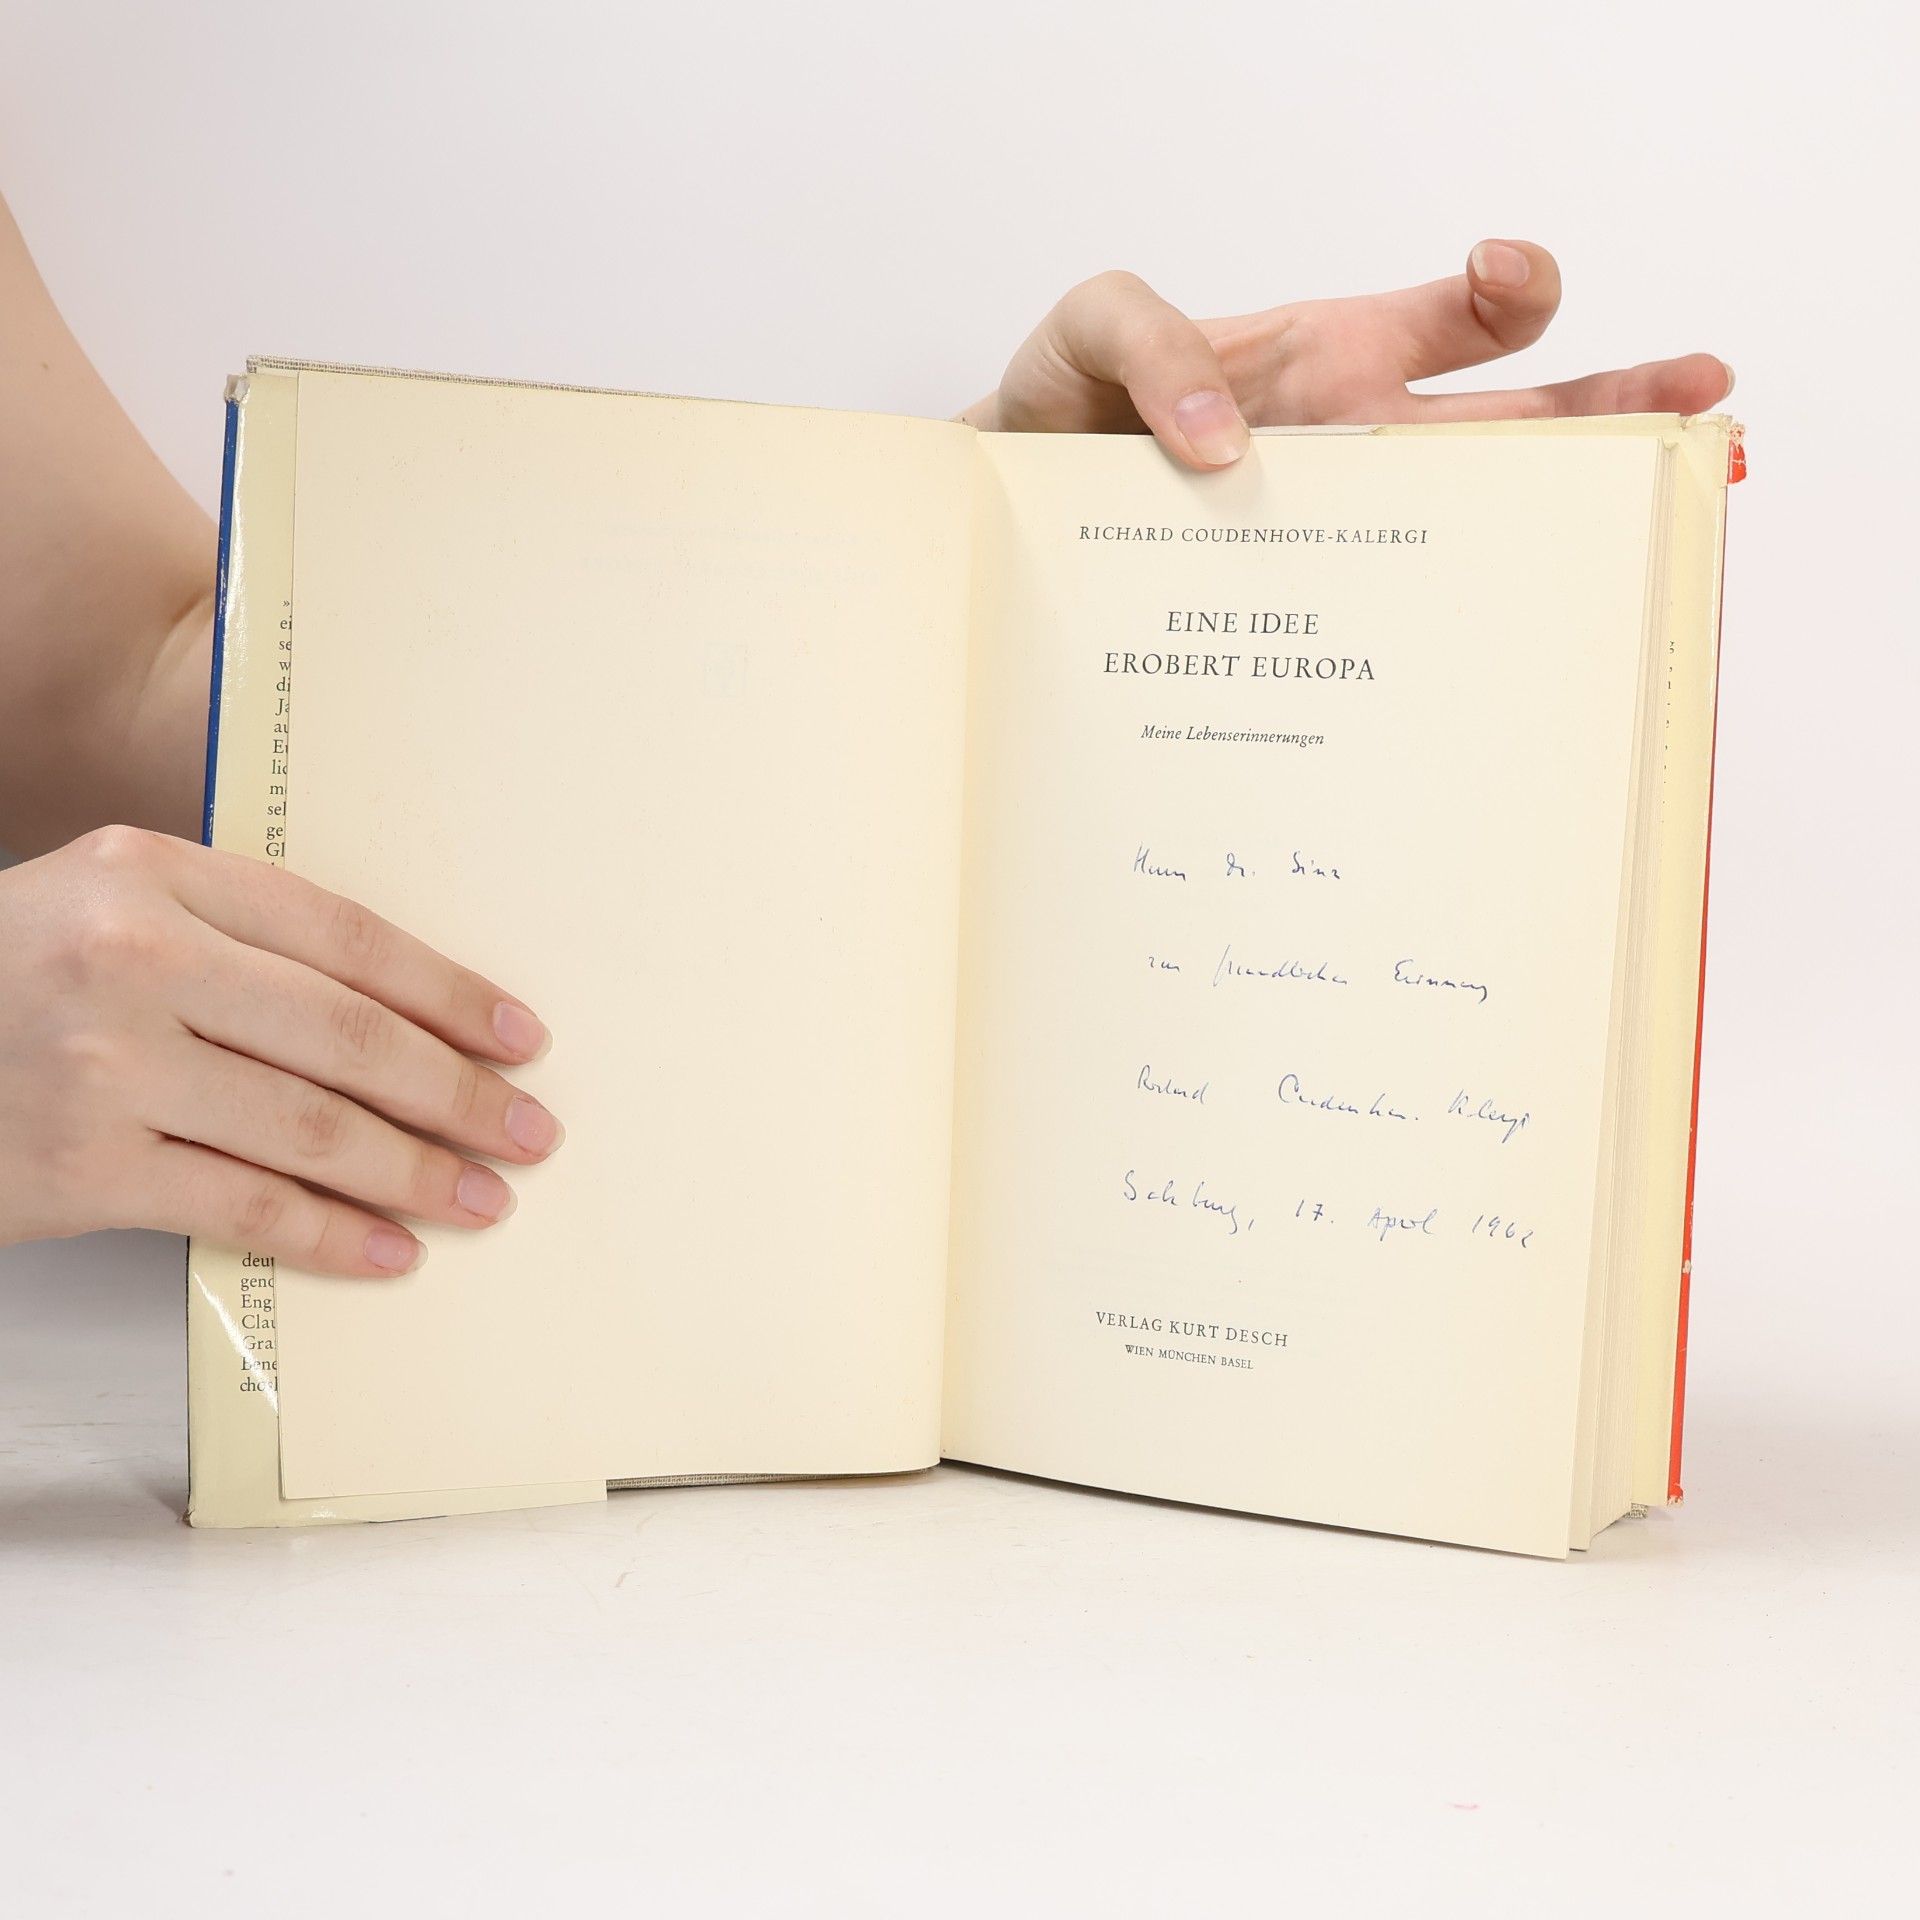 »
ei
se
w
di
Ja
au
Eu
lic
m
sel
ge
Gl
deut
geno
Eng
Clau
Gra
Bene
chosl
RICHARD COUDENHOVE-KALERGI
EINE IDEE
EROBERT EUROPA
Meine Lebenserinnerungen
Herrn Dr. Sinz
zur freundlichen Erinnerung
Richard Coudenhove-Kalergi
Salzburg, 17. April 1962
VERLAG KURT DESCH
WIEN MÜNCHEN BASEL